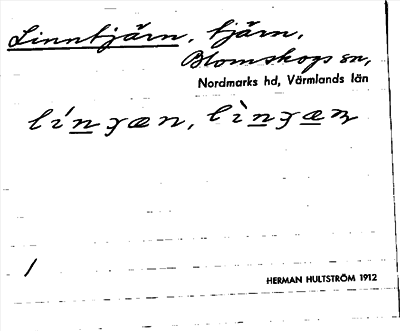 Linntjärn, tjärn,
Blomskogs sn,
Nordmarks hd, Värmlands län
HERMAN HULTSTRÖM 1912